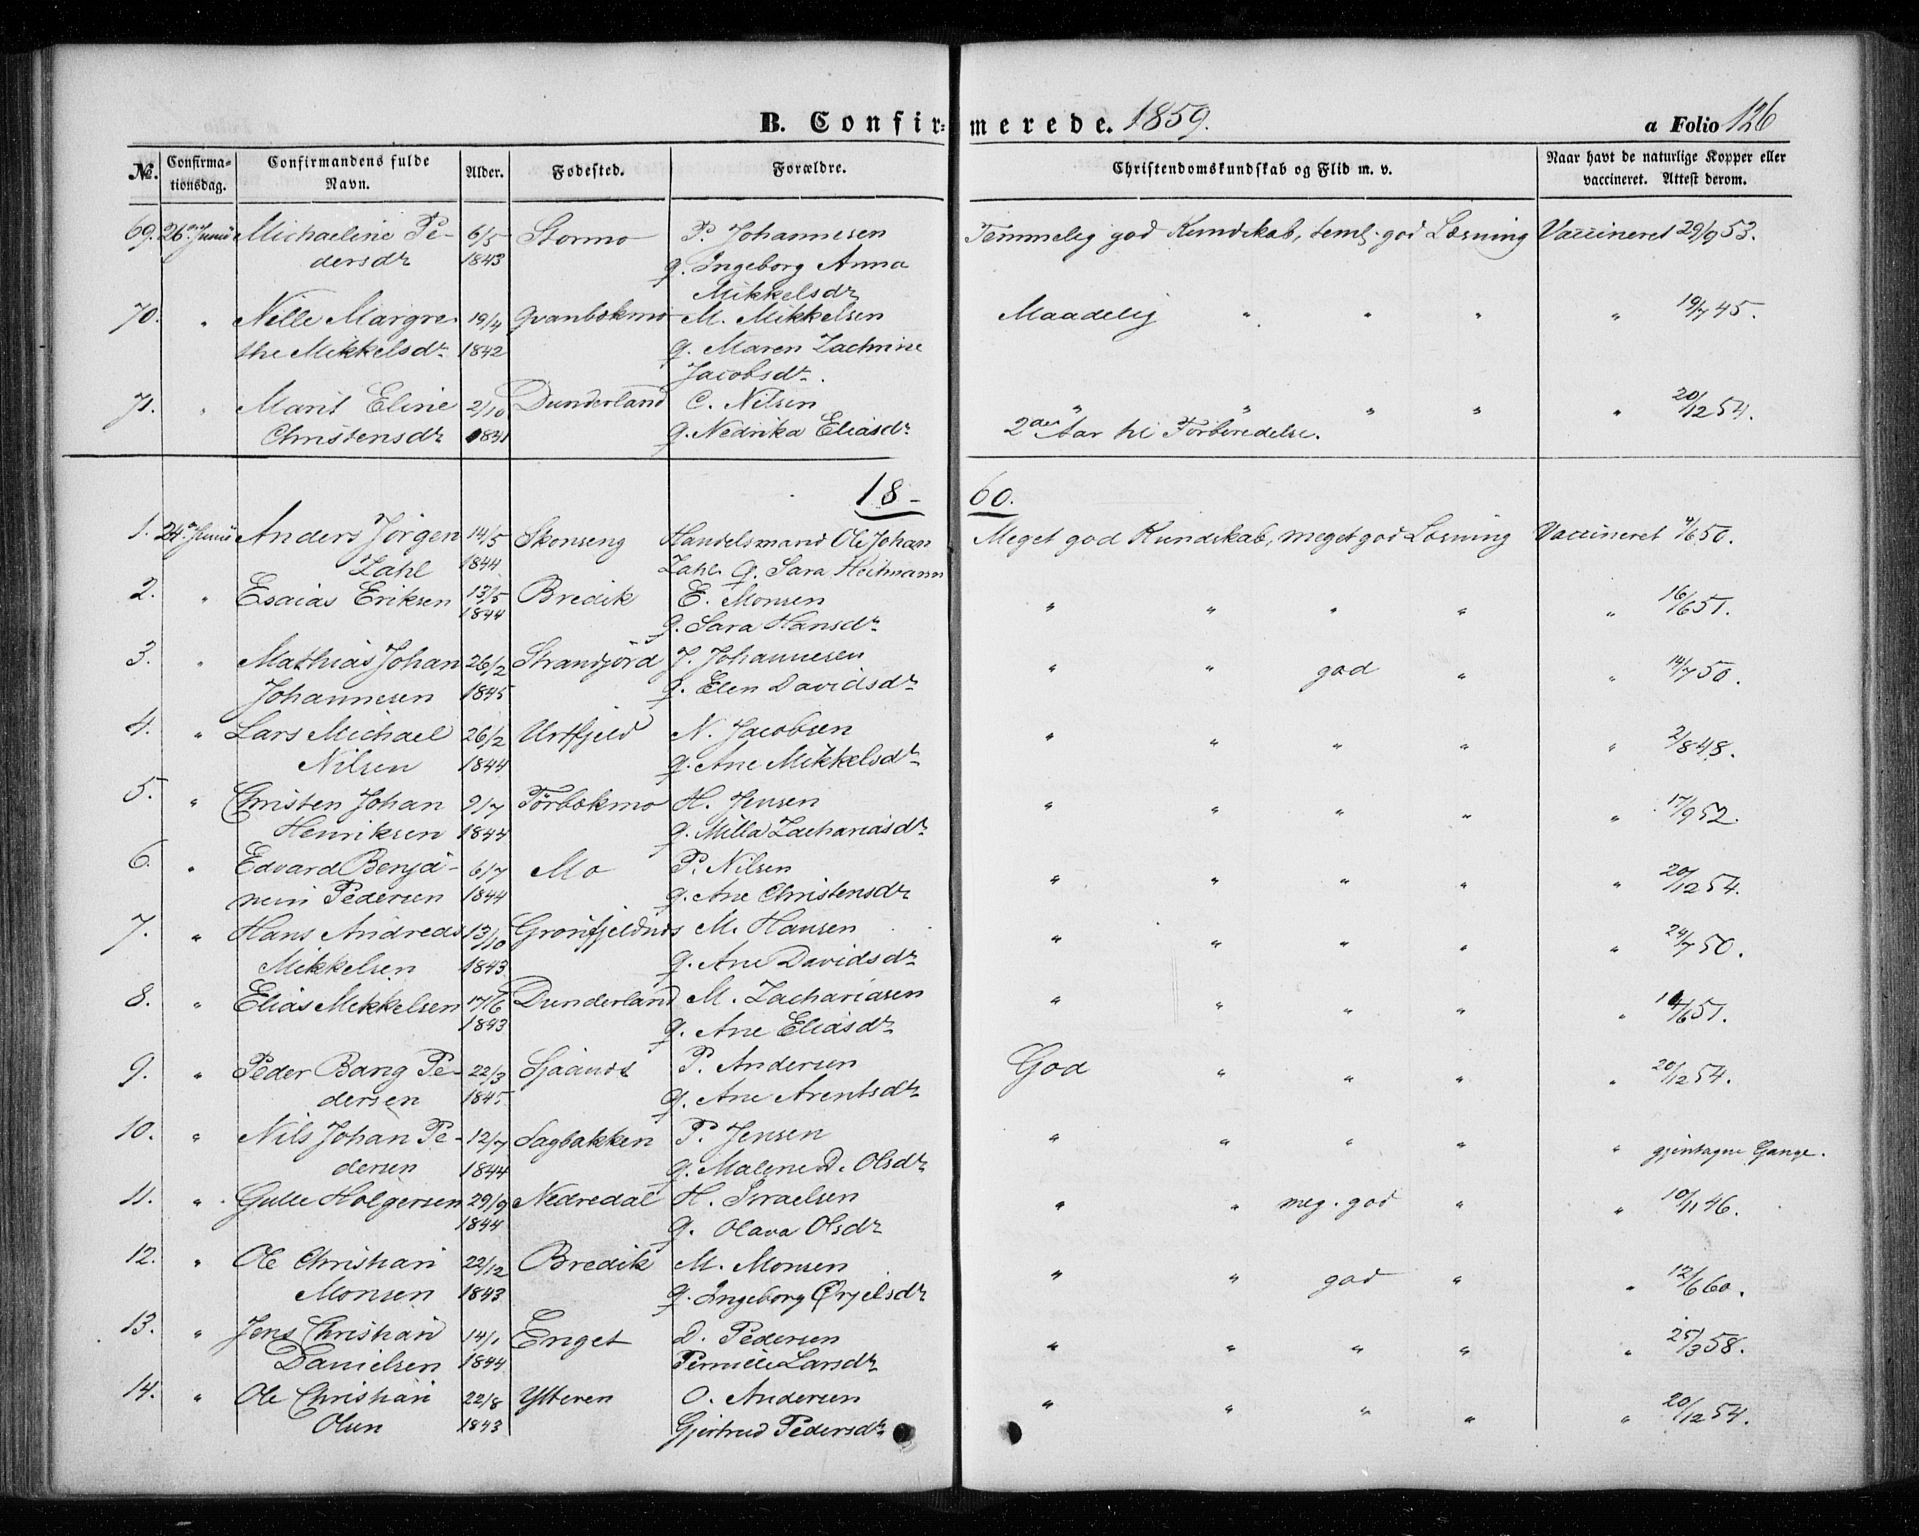 B. Confirmerede. 1859. a Folio 126
No. Confirmationsdag. Confirmandens fulde Navn. Alder. Fødested. Forældre. Christendomskundskab og Flid m. v. Naar havt de naturlige Kopper eller vaccineret. Attest derom.
69. 26de Junii Michaeline Pe- 6/5 Stormo P. Johannesen Temmelig god Kundskab, teml. god Læsning Vaccineret 29/9 53.
dersdr 1843 q. Ingeborg Anna
Mikkelsdr
70. " Nille Margre- 19/4 Qvanbækmo M. Mikkelsen Maadelig " " " " 19/7 45.
the Mikkelsdr 1842 q. Maren Zachrine
Jacobsdr.
71. " Marit Eline 2/10 Dunderland C. Nilsen " " " " " 20/12 54.
Christensdr 1841 q. Nedrika Eliasdr 2det Aar til Forberedelse.
18-60.
1. 24de Junii Anders Jörgen 14/5 Skonseng Handelsmand Ole Johan Meget god Kundskab, meget god Læsning Vaccineret 4/6 50.
Zahl 1844 Zahl q. Sara Heitmann
2. " Esaias Eriksen 13/5 Bredik E. Monsen " " " " " 16/6 51.
1844 q. Sara Hansdr
3. " Mathias Johan 26/2 Strandjörd J. Johannesen " " god " " 14/7 50.
Johannesen 1845 q. Elen Davidsdr
4. " Lars Michael 26/2 Urtfjeld N. Jacobsen " " " " " 2/8 48.
Nilsen 1844 q. Ane Mikkelsdr
5. " Christen Johan 9/7 Törbækmo H. Jensen " " " " " 17/9 52.
Henriksen 1844 q. Milla Zachariasdr
6. " Edvard Benja- 6/7 Mo P. Nilsen " " " " " 20/12 54.
min Pedersen 1844 q. Ane Christensdr
7. " Hans Andreas 13/10 Grönfjeldnæs M. Hansen " " " " " 24/7 50.
Mikkelsen 1843 q. Ane Davidsdr
8. " Elias Mikkelsen 17/6 Dunderland M. Zachariasen " " " " " 14/6 51.
1843 q. Ane Eliasdr
9. " Peder Bang Pe- 22/3 Sjaanæs P. Andersen God " " " " 20/12 54.
dersen 1845 q. Ane Arentsdr
10. " Nils Johan Pe- 12/7 Sagbakken P. Jensen " " " " " gjentagne Gange.
dersen 1844 q. Malene D. Olsdr
11. " Gulle Holgersen 29/9 Nedredal H. Israelsen " " meg. god " " 10/11 46.
1844 q. Olava Olsdr
12. " Ole Christian 22/12 Bredik M. Monsen " " god " " 12/6 60.
Monsen 1843 q. Ingeborg Ørjelsdr
13. " Jens Christian 14/1 Enget D. Pedersen " " " " " 25/3 58.
Danielsen 1844 Pernille Larsdr
14. " Ole Christian 22/8 Ytteren O. Andersen " " " " " 20/12 54.
Olsen 1843 Gjertrud Pedersdr